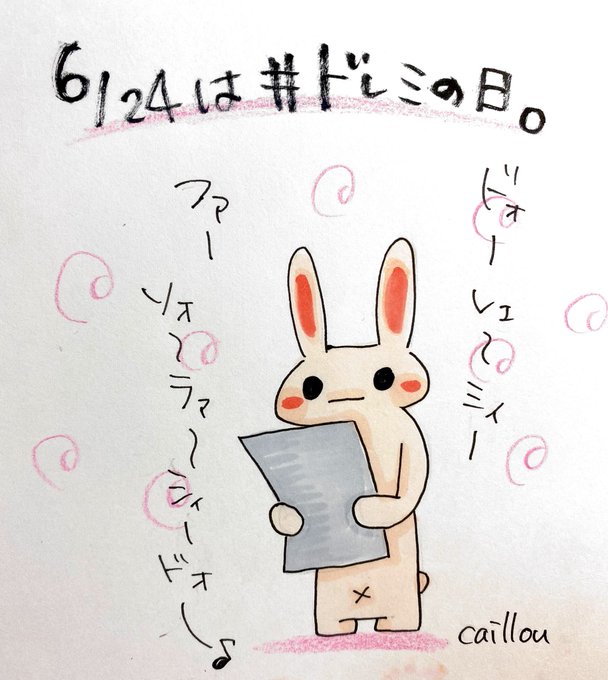 6/24は#ドレミの日。
ドォーレェ〜ミィー
ファー
ソォ〜ラァ〜シィー
ドォー♪
caillou